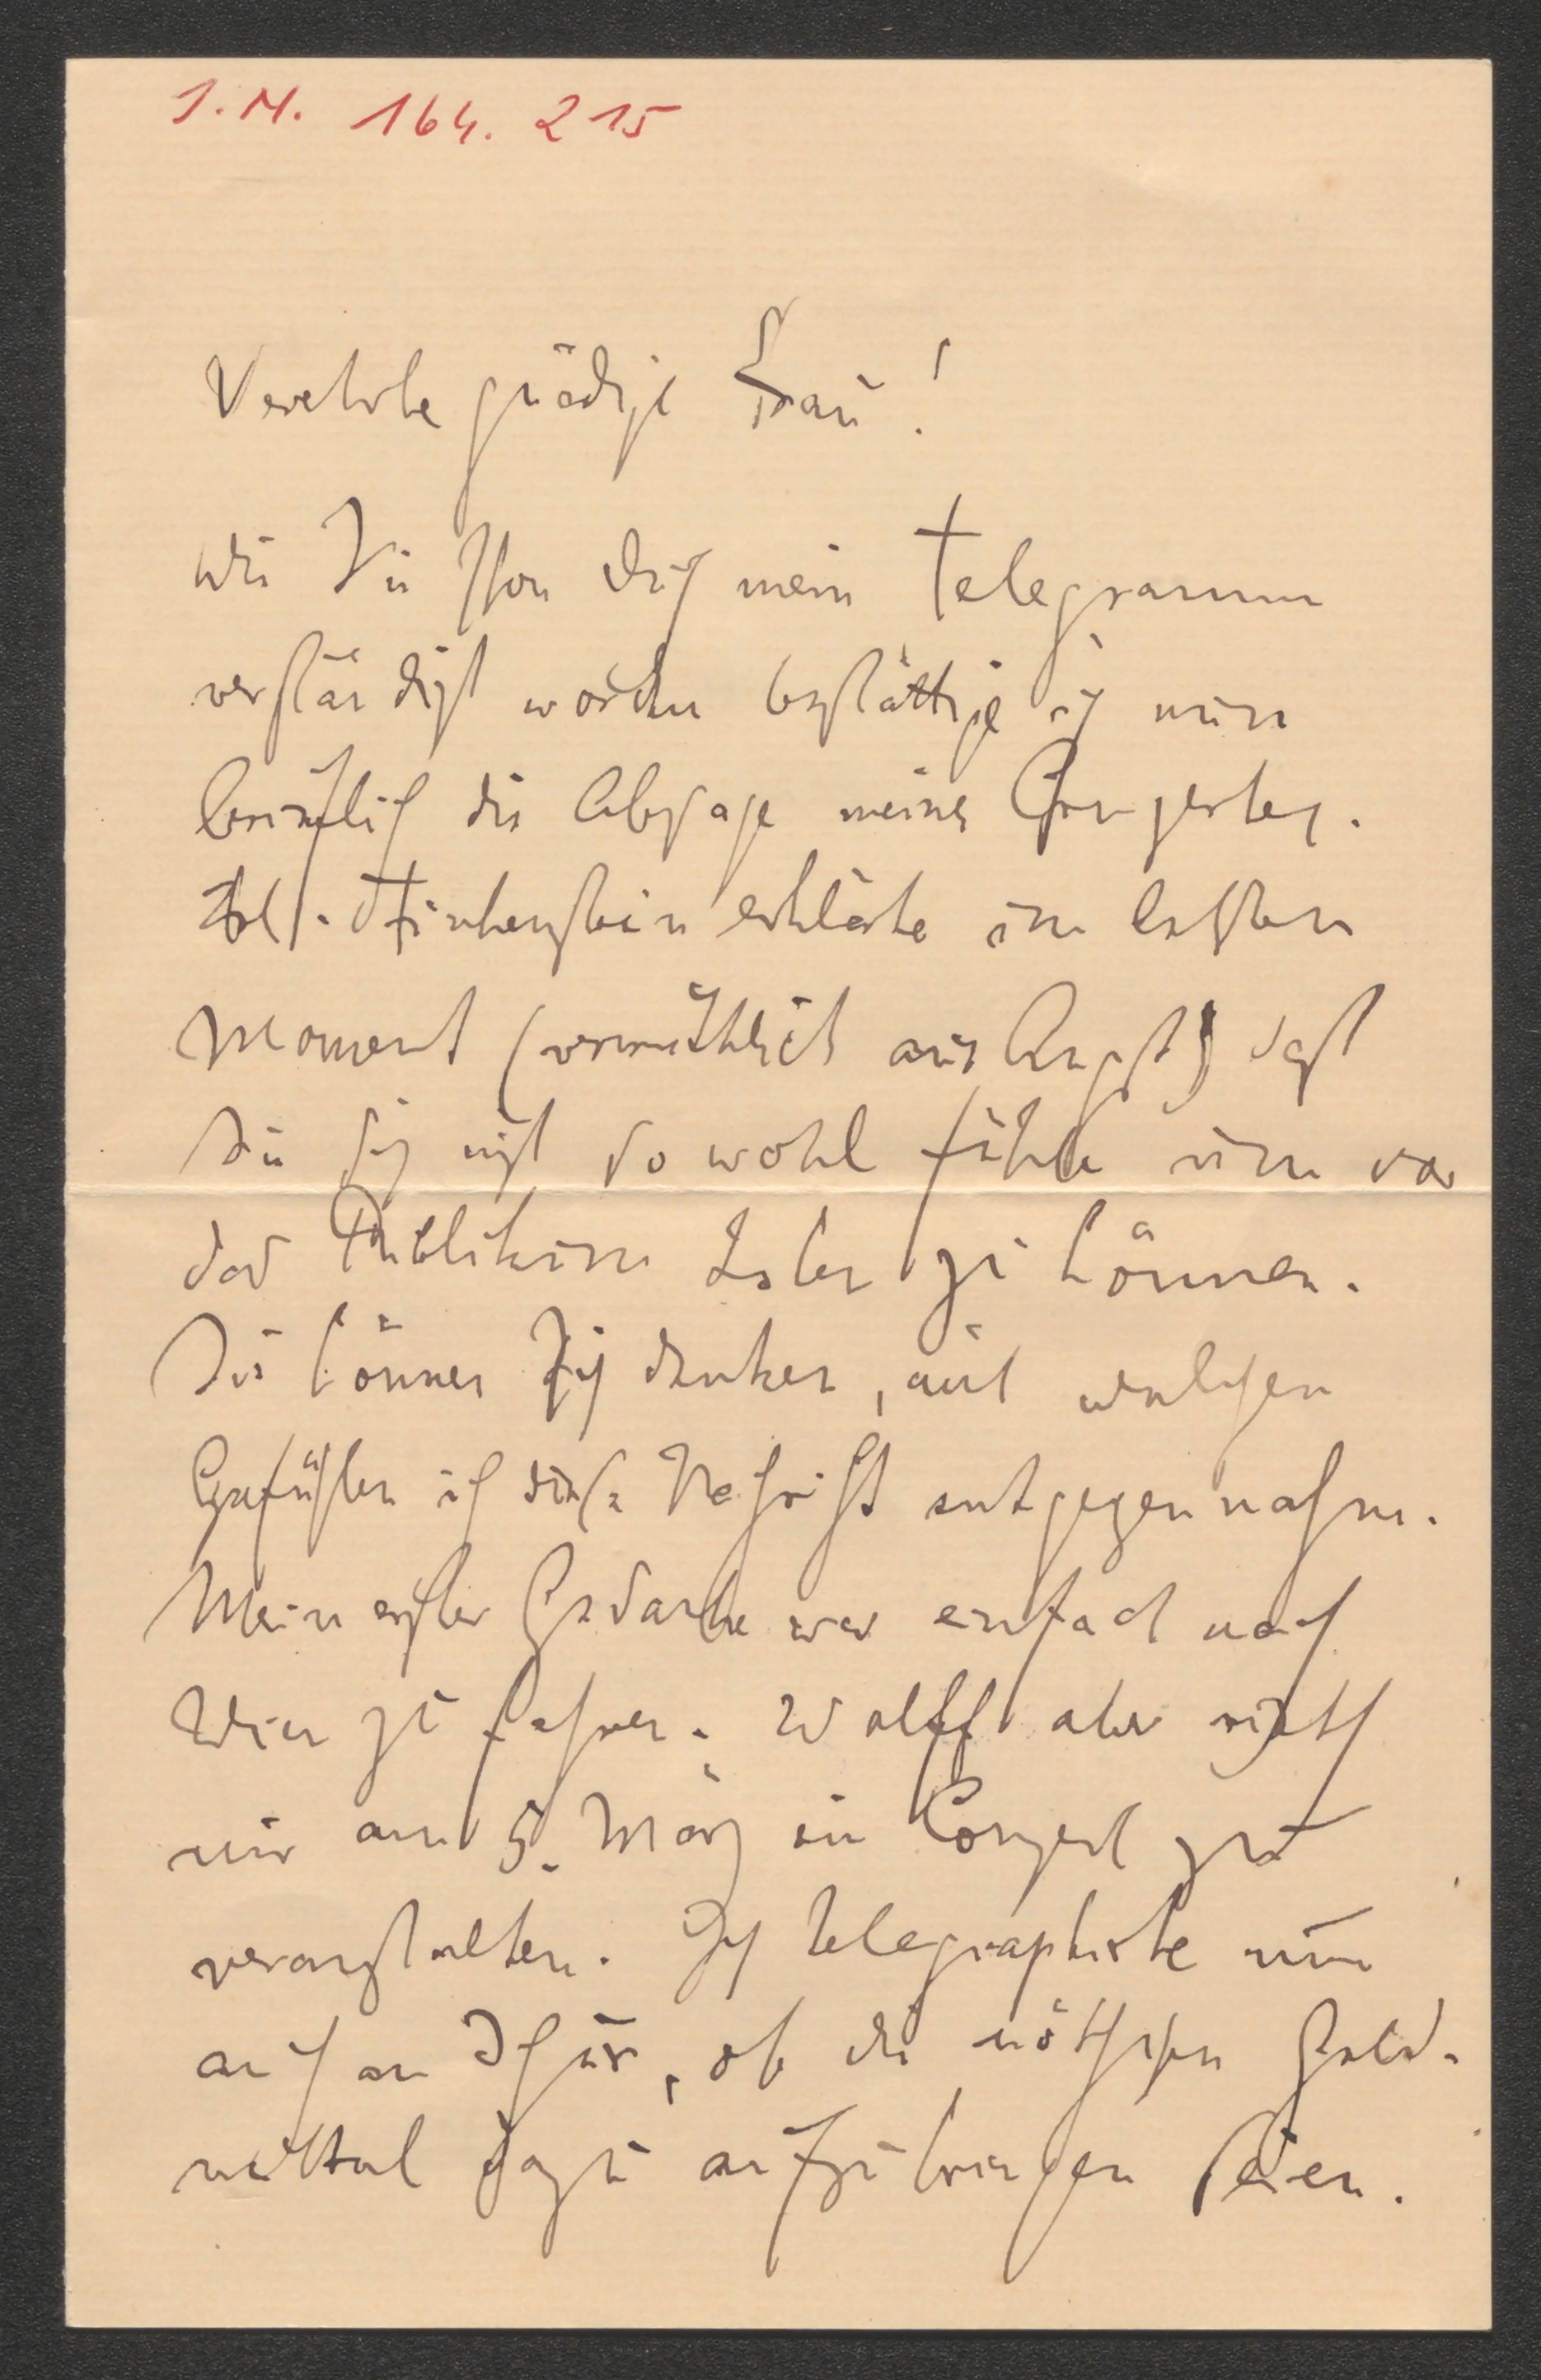 I.N. 164.215
Verehrte gnädige Frau!
Wie Sie schon durch mein Telegramm
verständigt worden bestättige ich nun
brieflich die Absage meines Conzertes.
Frl. Finkenstein erklärte im letzten
Moment (vermuthlich aus Angst) daß
sie sich nicht so wohl fühle um vor
das Publikum treten zu können.
Sie können sich denken, mit welchen
Gefühlen ich diese Nachricht entgegennahm.
Mein erster Gedanke war einfach nach
Wien zu fahren. Wolff aber rieth
mir am 5. März ein Conzert zu
veranstalten. Ich telegraphirte nun
auch an Schur, ob die nöthigen Geld-
mittel dazu aufzubringen seien.